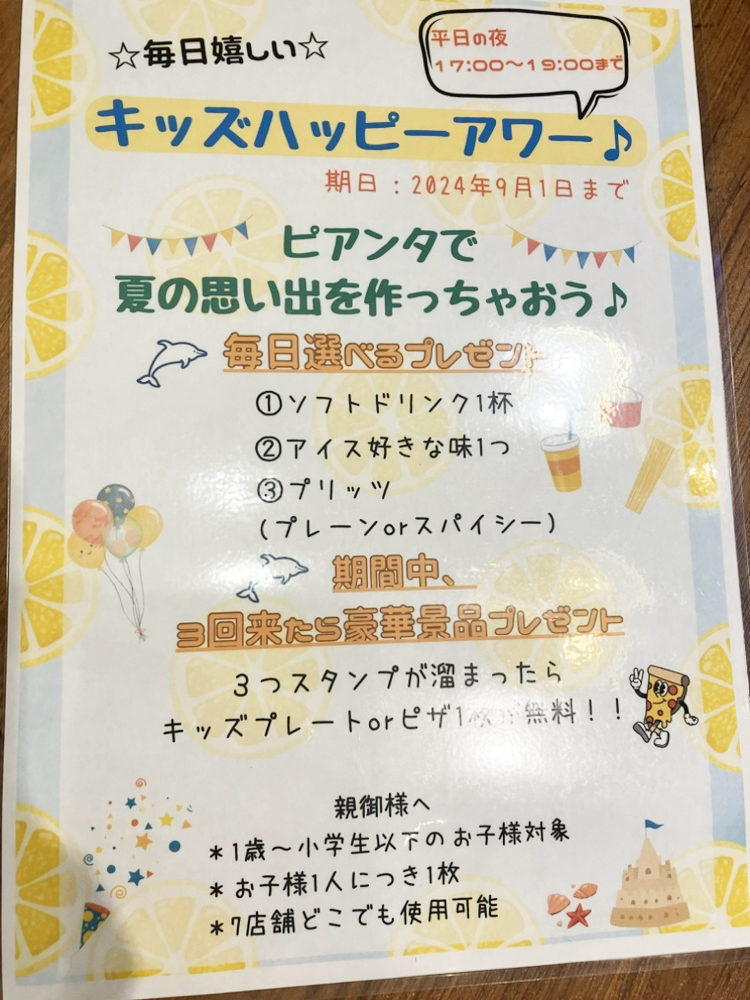 ☆毎日嬉しい☆
平日の夜
17:00〜19:00まで
キッズハッピーアワー♪
期日：2024年9月1日まで
ピアンタで
夏の思い出を作っちゃおう♪
毎日選べるプレゼント
①ソフトドリンク1杯
②アイス好きな味1つ
③プリッツ
(プレーンorスパイシー)
期間中、
3回来たら豪華景品プレゼント
3つスタンプが溜まったら
キッズプレートorピザ1枚が無料！！
親御様へ
*1歳〜小学生以下のお子様対象
*お子様1人につき1枚
*7店舗どこでも使用可能